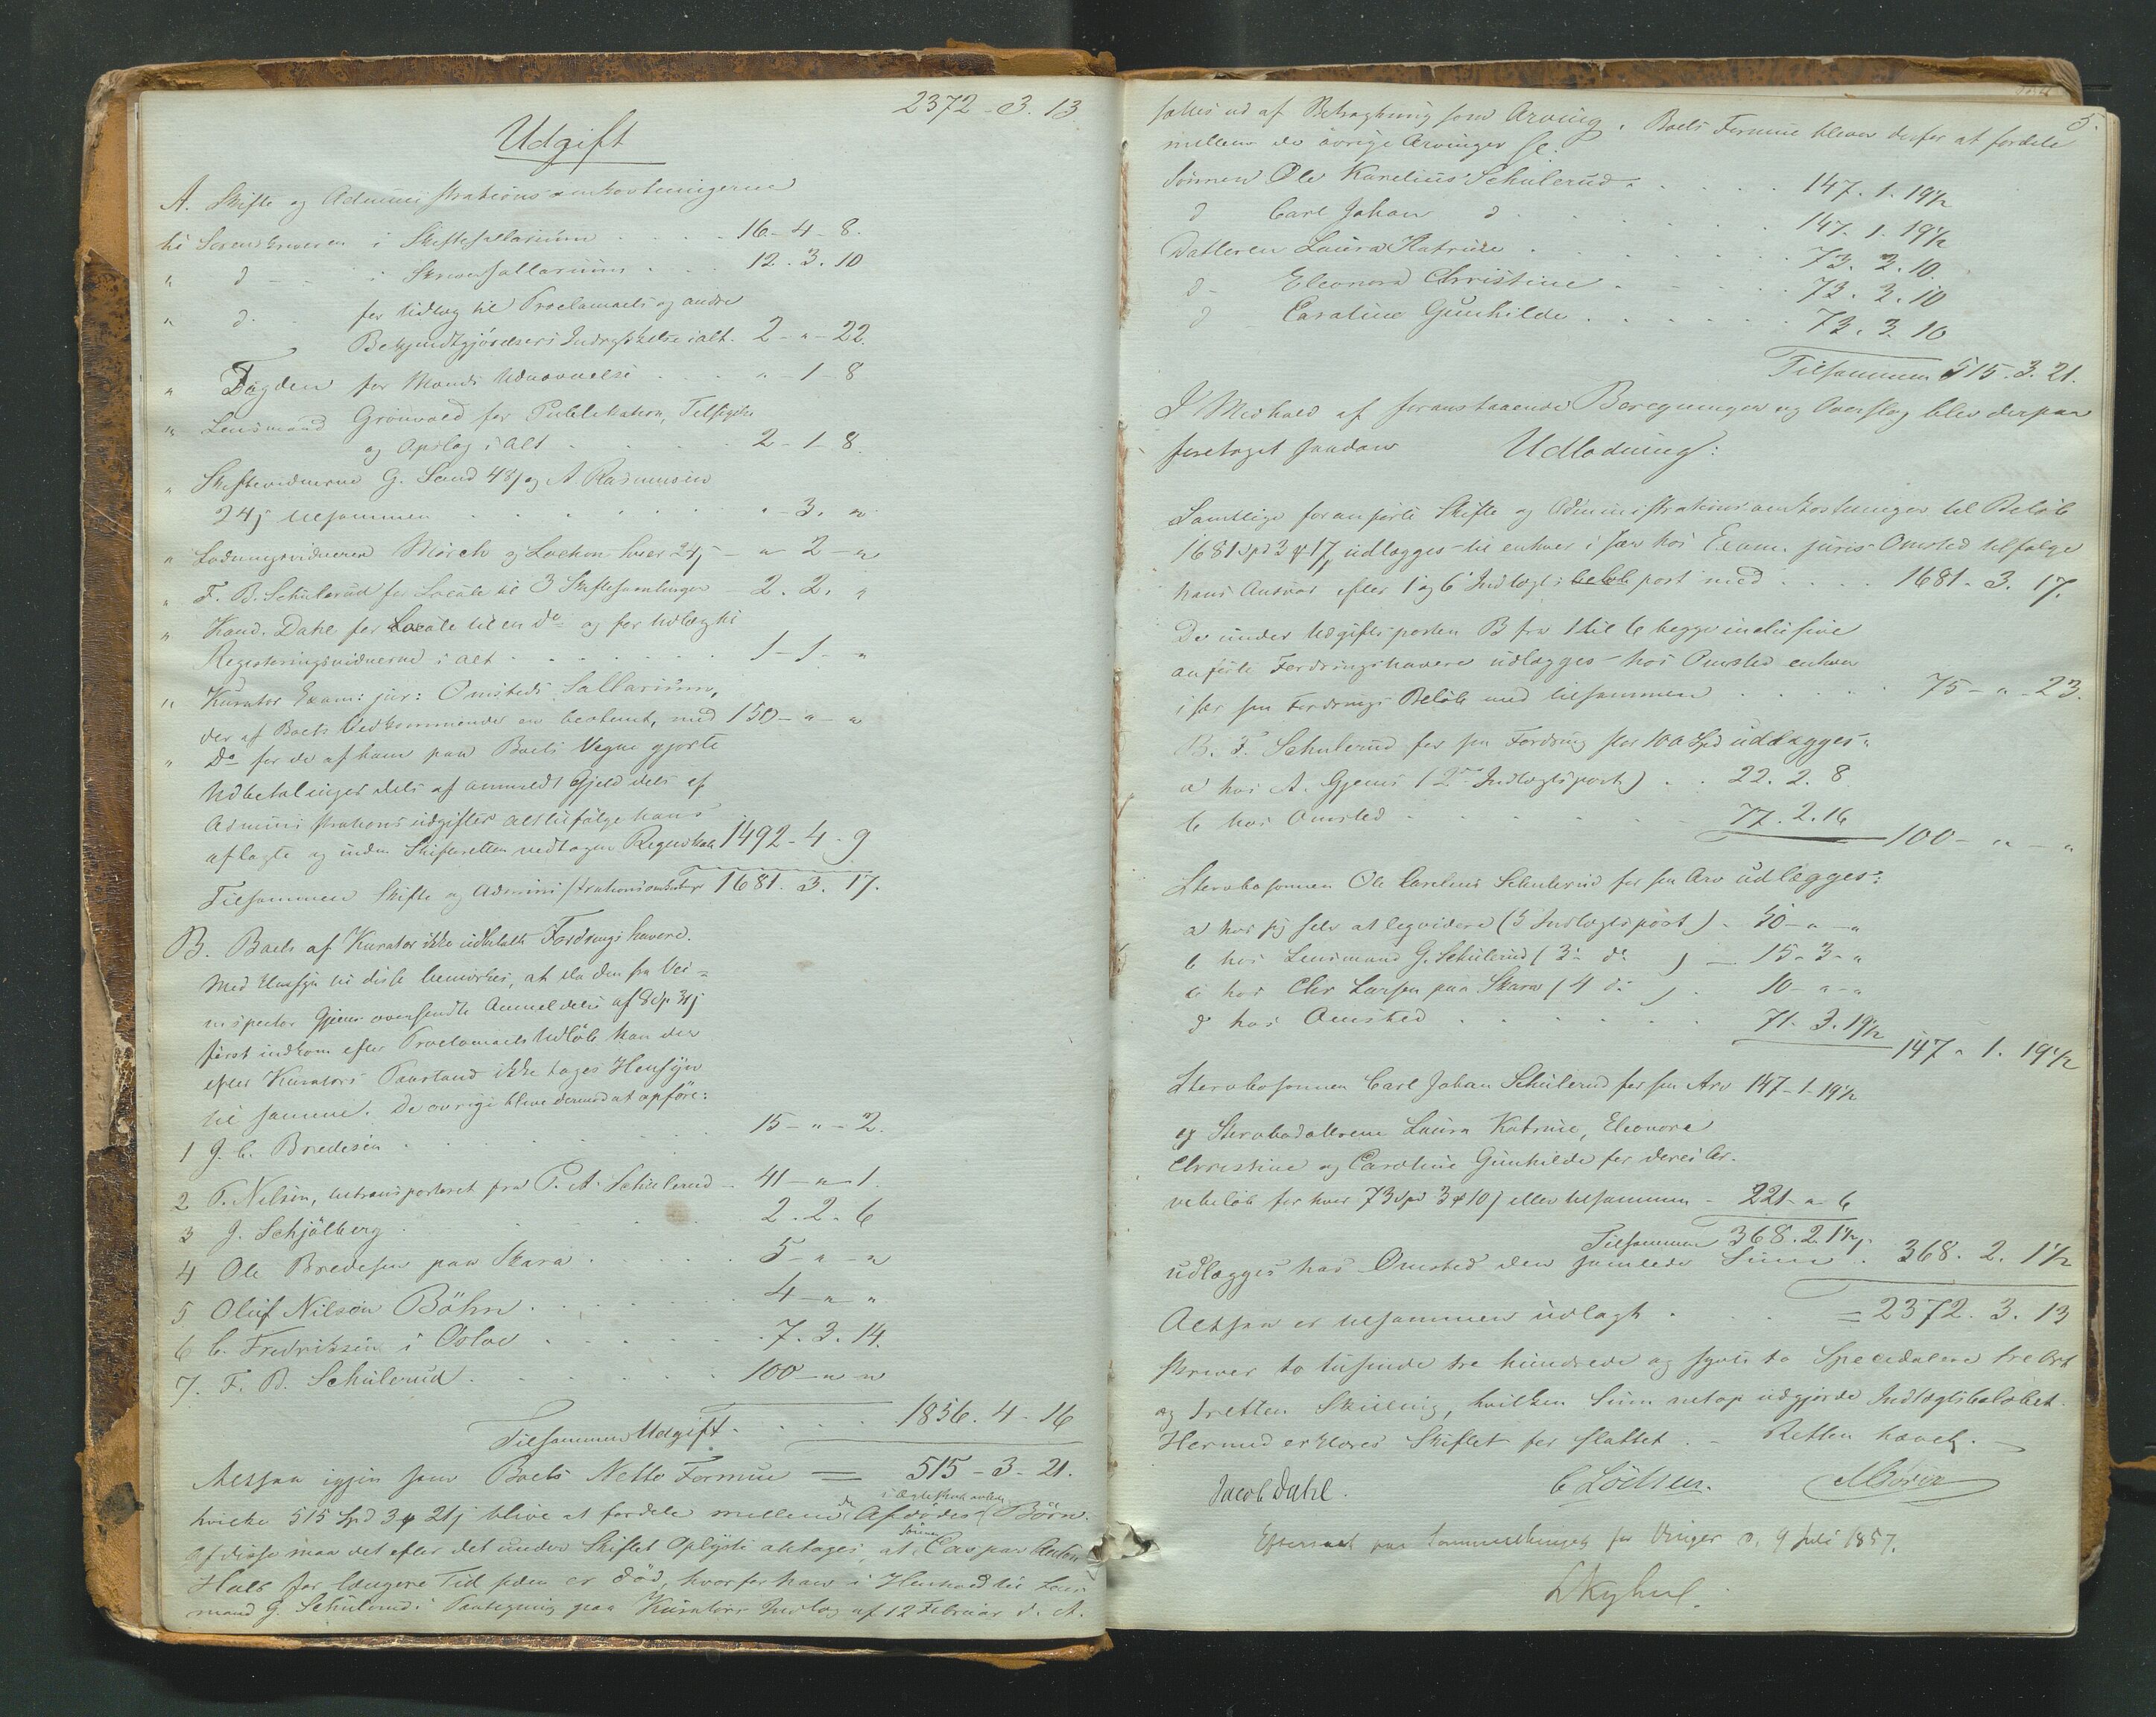 2372 - 3. 13
Udgift
A. Skifte og Administrationsomkostningerne
til Sorenskriveren i Skiftesallarium . . . . 16 - 4 - 8.
" d - - i Skriversallarium . . . 12 - 3. 10
" d. for Udlæg til Proclamaets og andre
Bekjendtgjörelsers Indrykkelse ialt. 2 - " - 22.
" Fogden for Mænds Udnævnelse . . . " - 1 - 8
" Lensmand Grönvold for Publikation, Tilsigelse
og Opslag i Alt . . . . 2 - 1 - 8.
" Skiftevidnerne G. Sund 48 ß og A. Rasmusen
24 ß tilsammen . . . . . . " - 3. "
" Lodningsvidnerne Mörch og Lochen hver 24 ß - " 2 - "
" F. B. Schulerud for Locale til 3 Skiftesamlinger - 2. 2. "
" Kand. Dahl for Locale til en do og for Udlæg til
Registeringsvidnerne i alt . . . . . . 1 - 1 - "
" Kurator Exam: jur: Omsteds Sallarium,
der af Boets Vedkommende er bestemt, med 150 - " - "
" Do for de af ham paa Boets Vegne gjorte
Udbetalinger dels af anmeldt Gjeld dels af
Administrationsudgifter alt tilfölge hans
aflagte og inden Skifteretten vedtagne Regnskab 1492 - 4 - 9
Tilsammen Skifte og Administrationsomkostninger 1681. 3. 17.
B. Boets af Kurator ikke udbetalte Fordringshavere.
Med Hensyn til disse bemærkes, at da den fra Vei-
inspector Gjems oversendte Anmeldelse af
först indkom efter Proclamaets Udlöb kan der
efter Kurators Paastand ikke tages Hensyn
til samme. De övrige blive dermed at opföre:
1 J. C. Bredesen . . . . . . 15 - " - 2.
2 P. Nilsen, transporteret fra P. A. Schulerud - 41 - " - 1.
3 J. Schjölberg . . . . . . 2. 2. 6
4 Ole Bredesen paa Skara . . . . . 5 - " - "
5 Oluf Nilsen Böhn . . . . . . 4 - " "
6 C. Fredriksen i Oslo . . . . . . 7. 3. 14.
7. F. B. Schulerud . . . . . . 100 - " "
Tilsammen Udgift . . . . 1856. 4 - 16
Altsaa igjen som Boets Netto Formue = 515 - 3 - 21.
hvilke 515 Spd 3 ƒ 21 ß blive at fordele mellem den Afdödes i Ægteskab avlede Börn.
Af disse maa det efter det under Skiftet Oplyste antages, at Sönnen Caspar Anton
Hals for længere Tid siden er död, hvorfor han i Henhold til Lens-
mand G. Schuleruds Paategning paa Kurators Indlæg af 12 Februar d. A.
5.
sættes ud af Betragtning som Arving. Boets Formue bliver derfor at fordele
mellem de övrige Arvinger sc.
Sönnen Ole Karelius Schulerud . . . . . 147. 1. 19½
d Carl Johan d . . . . . . 147. 1. 19½
Datteren Laura Katrine . . . . . . 73. 3. 10.
d - Eleonora Christine . . . . . 73. 3. 10
d Caroline Gunhilde . . . . . . 73. 3. 10
Tilsammen 515. 3. 21.
I Medhold af foranstaaende Beregninger og Overslag blev derpaa
foretaget saadan Udlodning:
Samtlige foranförte Skifte og Administrationsomkostninger til Belöb
1681 Spd 3 ƒ 17 ß udlægges til enhver i sær hos Exam. juris Omsted tilfölge
hans Ansvar efter 1 og 6 Indtægts belöb post med . . . . 1681. 3. 17.
De under Udgiftsposten B fra 1 til 6 begge inclusive
anförte Fordringshavere udlægges hos Omsted enhver
i sær sin Fordrings Belöb med tilsammen . . . . . 75 - " - 23.
B. F. Schulerud for sin Fordring stor 100 Spd udlægges:
a hos A. Gjems (2den Indtægtspost) . . 22. 2. 8
b hos Omsted . . . . . . 77. 2. 16
100 - " - "
Stervbosönnen Ole Carelius Schulerud for sin Arv udlægges:
a hos sig selv at leqvidere (5 Indtægtspost) . 50 - " - "
b hos Lensmand G. Schulerud (3 do ) - 15 - 3 - "
c hos Chr Larsen paa Skara (4 do ) . 10 - " - "
d hos Omsted . . . . . . . 71. 3. 19½
147 " 1. 19½
Stervbosönnen Carl Johan Schulerud for sin Arv 147 - 1 - 19½
og Stervbodøttrene Laura Katrine, Eleonore
Christine og Caroline Gunhilde for deres Ar-
vebelöb for hver 73 Spd 3 ƒ 10 ß eller tilsammen - 221 - " 6
Tilsammen 368. 2. 1½.
udlægges hos Omsted den samlede Sum . 368. 2. 1½
Altsaa er tilsammen udlagt . . . = 2372. 3. 13
skriver to tusinde tre hundrede og sytti to Speciedalere tre Ort
og tretten Skilling, hvilken Sum netop udgjörde Indtægtsbelöbet.
Hermed erklæres Skiftet for sluttet. - Retten hævet.
Jacob Dahl. C Löchen.
Efterseet paa Sommerthinget for Vinger d. 9 Juli 1857.